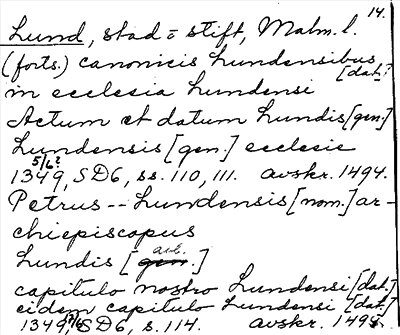 14.
Lund, stad = stift, Malm. l.
(forts.) canonicis Lundensibus
[dat.]
in ecclesia Lundensi
Actum et datum Lundis [gen.]
Lundensis [gen.] ecclesie
5/6?
1349, SD6, ss. 110, 111. avskr. 1494.
Petrus -- Lundensis [nom.] ar-
chiepiscopus
abl.
Lundis [gen.]
capitulo nostro Lundensi [dat.]
eidem capitulo Lundensi [dat.]
1349, SD6, s. 114. avskr. 1494.